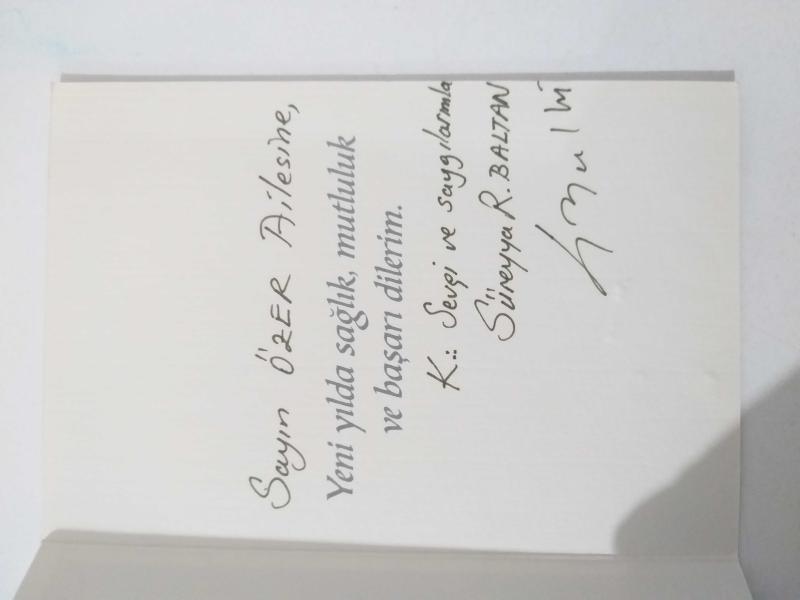 Sayın ÖZER Ailesine,
Yeni yılda sağlık, mutluluk
ve başarı dilerim.
K.: Sevgi ve saygılarımla
Süreyya R. BALTAN